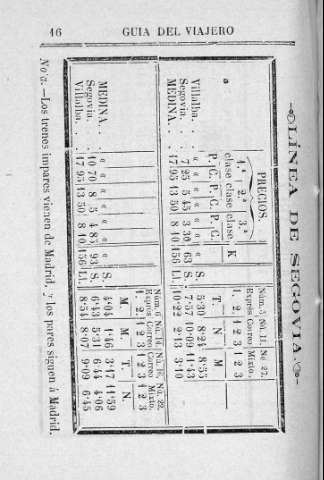 16 GUIA DEL VIAJERO
LÍNEA DE SEGOVIA.
PRECIOS.
1.ª 2.ª 3.ª
clase clase clase. K
P. C. P. C. P. C.
Núm. 5 Nú. 11. Nú 27.
Expres Correo Mixto.
1. 2. 1 2 3 1 2 3
T. N M
Villalba. . . S. 5·30 8·24 8·55
Segovia. . . 7 25 5 45 3 30 63 7·57 10·09 11·43
MEDINA. . . 17 95 13 50 8 10 156 Ll. 10·22 2·13 3·10
Núm. 6 Nú. 14. Nú. 16. Nú. 22.
Expres Correo Correo Mixto.
1. 2. 1 2 3 1 2 3 1 2 3
M. M. T. N.
MEDINA. . . S. 4·04 1·46 3·47 11·59
Segovia. . . 10 70 8 5 4 85 93 S. 6·43 5·31 6·44 4·06
Villalba. . . 17 95 13 50 8 10 156 Ll. 8·54 8·07 9·09 6·45
Nota.—Los trenes impares vienen de Madrid, y los pares siguen á Madrid.